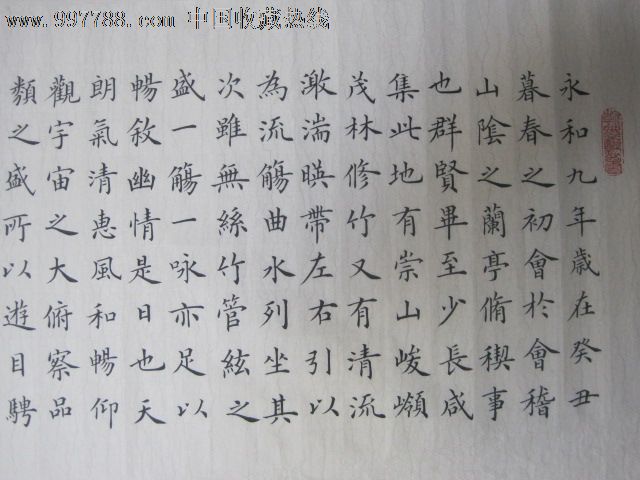 www.997788.com 中国收藏热线
永和九年歲在癸丑
暮春之初會於會稽
山陰之蘭亭脩稧事
也群賢畢至少長咸
集此地有崇山峻嶺
茂林修竹又有清流
激湍暎帶左右引以
為流觴曲水列坐其
次雖無絲竹管絃之
盛一觴一咏亦足以
暢敘幽情是日也天
朗氣清惠風和暢仰
觀宇宙之大俯察品
類之盛所以遊目騁